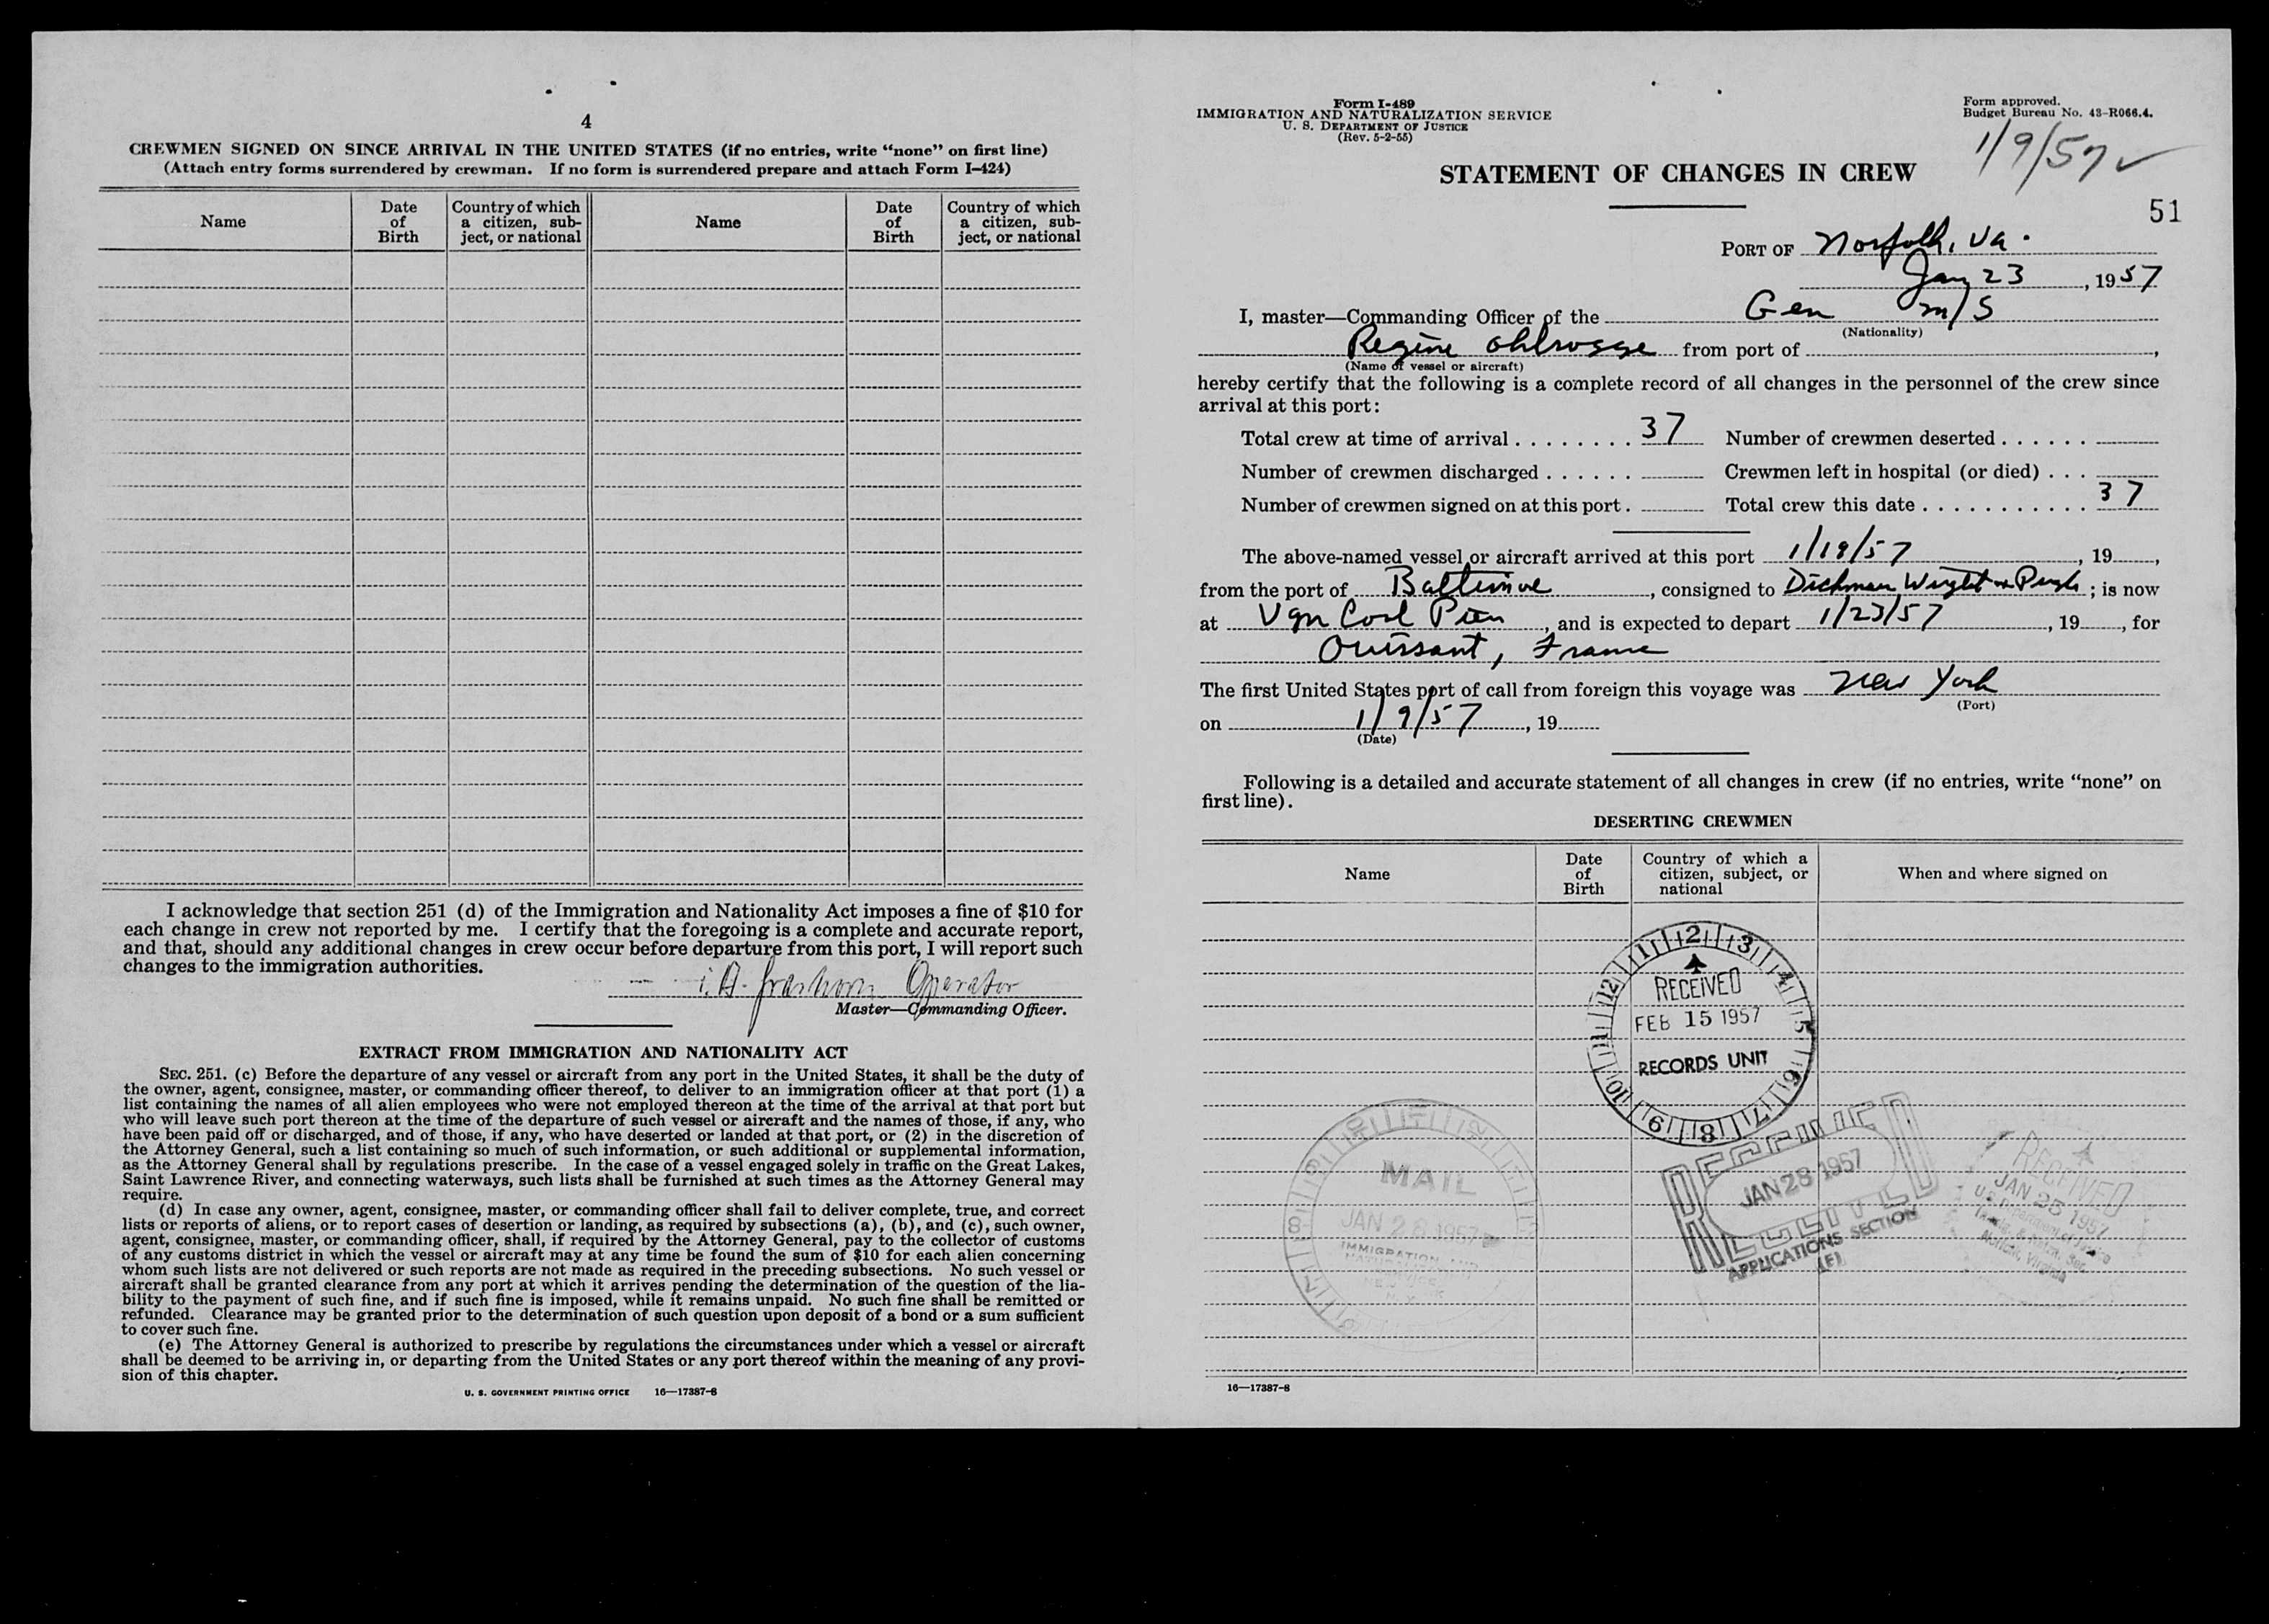 4
CREWMEN SIGNED ON SINCE ARRIVAL IN THE UNITED STATES (if no entries, write “none” on first line)
(Attach entry forms surrendered by crewman. If no form is surrendered prepare and attach Form I–424)
Name
Date of Birth
Country of which a citizen, subject, or national
Name
Date of Birth
Country of which a citizen, subject, or national
I acknowledge that section 251 (d) of the Immigration and Nationality Act imposes a fine of $10 for
each change in crew not reported by me. I certify that the foregoing is a complete and accurate report,
and that, should any additional changes in crew occur before departure from this port, I will report such
changes to the immigration authorities.
Operator
Master—Commanding Officer.
EXTRACT FROM IMMIGRATION AND NATIONALITY ACT
SEC. 251. (c) Before the departure of any vessel or aircraft from any port in the United States, it shall be the duty of
the owner, agent, consignee, master, or commanding officer thereof, to deliver to an immigration officer at that port (1) a
list containing the names of all alien employees who were not employed thereon at the time of the arrival at that port but
who will leave such port thereon at the time of the departure of such vessel or aircraft and the names of those, if any, who
have been paid off or discharged, and of those, if any, who have deserted or landed at that port, or (2) in the discretion of
the Attorney General, such a list containing so much of such information, or such additional or supplemental information,
as the Attorney General shall by regulations prescribe. In the case of a vessel engaged solely in traffic on the Great Lakes,
Saint Lawrence River, and connecting waterways, such lists shall be furnished at such times as the Attorney General may
require.
(d) In case any owner, agent, consignee, master, or commanding officer shall fail to deliver complete, true, and correct
lists or reports of aliens, or to report cases of desertion or landing, as required by subsections (a), (b), and (c), such owner,
agent, consignee, master, or commanding officer, shall, if required by the Attorney General, pay to the collector of customs
of any customs district in which the vessel or aircraft may at any time be found the sum of $10 for each alien concerning
whom such lists are not delivered or such reports are not made as required in the preceding subsections. No such vessel or
aircraft shall be granted clearance from any port at which it arrives pending the determination of the question of the lia-
bility to the payment of such fine, and if such fine is imposed, while it remains unpaid. No such fine shall be remitted or
refunded. Clearance may be granted prior to the determination of such question upon deposit of a bond or a sum sufficient
to cover such fine.
(e) The Attorney General is authorized to prescribe by regulations the circumstances under which a vessel or aircraft
shall be deemed to be arriving in, or departing from the United States or any port thereof within the meaning of any provi-
sion of this chapter.
U. S. GOVERNMENT PRINTING OFFICE 16—17387-8
Form I-489
IMMIGRATION AND NATURALIZATION SERVICE
U. S. DEPARTMENT OF JUSTICE
(Rev. 5-2-55)
Form approved.
Budget Bureau No. 43-R066.4.
1/9/57 ✓
STATEMENT OF CHANGES IN CREW
51
PORT OF Norfolk, Va.
Jan 23, 1957
I, master—Commanding Officer of the Gen M/S
(Nationality)
Regine Ohlrogge from port of ,
(Name of vessel or aircraft)
hereby certify that the following is a complete record of all changes in the personnel of the crew since
arrival at this port:
Total crew at time of arrival . . . . . . . . 37 Number of crewmen deserted . . . . . .
Number of crewmen discharged . . . . . . Crewmen left in hospital (or died) . . .
Number of crewmen signed on at this port . Total crew this date . . . . . . . . . . . . 37
The above-named vessel or aircraft arrived at this port 1/18/57, 19 ,
from the port of Baltimore, consigned to Dichman Wright & Pugh; is now
at Vgn Coal Pier, and is expected to depart 1/23/57, 19 , for
Ouissant, France
The first United States port of call from foreign this voyage was New York
(Port)
on 1/9/57, 19
(Date)
Following is a detailed and accurate statement of all changes in crew (if no entries, write “none” on
first line).
DESERTING CREWMEN
Name
Date of Birth
Country of which a citizen, subject, or national
When and where signed on
12 1 2 3 4 5 6 7 8 9 10 11
RECEIVED
FEB 15 1957
RECORDS UNIT
MAIL
JAN 28 1957
IMMIGRATION
RECEIVED
JAN 28 1957
APPLICATIONS SECTION
(F)
RECEIVED
JAN 25 1957
U.S. Department of Justice
Norfolk, Virginia
16—17387-8